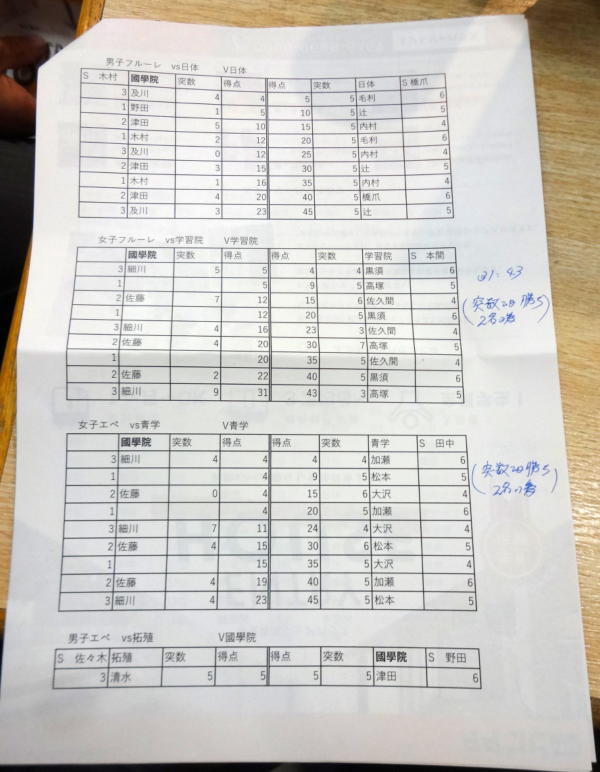 男子フルーレ vs日体 V日体
S 木村 國學院 突数 得点 得点 突数 日体 S 橋爪
3 及川 4 4 5 5 毛利 6
1 野田 1 5 10 5 辻 5
2 津田 5 10 15 5 内村 4
1 木村 2 12 20 5 毛利 6
3 及川 0 12 25 5 内村 4
2 津田 3 15 30 5 辻 5
1 木村 1 16 35 5 内村 4
2 津田 4 20 40 5 橋爪 6
3 及川 3 23 45 5 辻 5
女子フルーレ vs学習院 V学習院
國學院 突数 得点 得点 突数 学習院 S 本間
3 細川 5 5 4 4 黒須 6
1 5 9 5 高塚 5
2 佐藤 7 12 15 6 佐久間 4
1 12 20 5 黒須 6
3 細川 4 16 23 3 佐久間 4
2 佐藤 4 20 30 7 高塚 5
1 20 35 5 佐久間 4
2 佐藤 2 22 40 5 黒須 6
3 細川 9 31 43 3 高塚 5
31:43
2名
女子エペ vs青学 V青学
國學院 突数 得点 得点 突数 青学 S 田中
3 細川 4 4 4 4 加瀬 6
1 4 9 5 松本 5
2 佐藤 0 4 15 6 大沢 4
1 4 20 5 加瀬 6
3 細川 7 11 24 4 大沢 4
2 佐藤 4 15 30 6 松本 5
1 15 35 5 大沢 4
2 佐藤 4 19 40 5 加瀬 6
3 細川 4 23 45 5 松本 5
2名
男子エペ vs拓殖 V國學院
S 佐々木 拓殖 突数 得点 得点 突数 國學院 S 野田
3 清水 5 5 5 5 津田 6